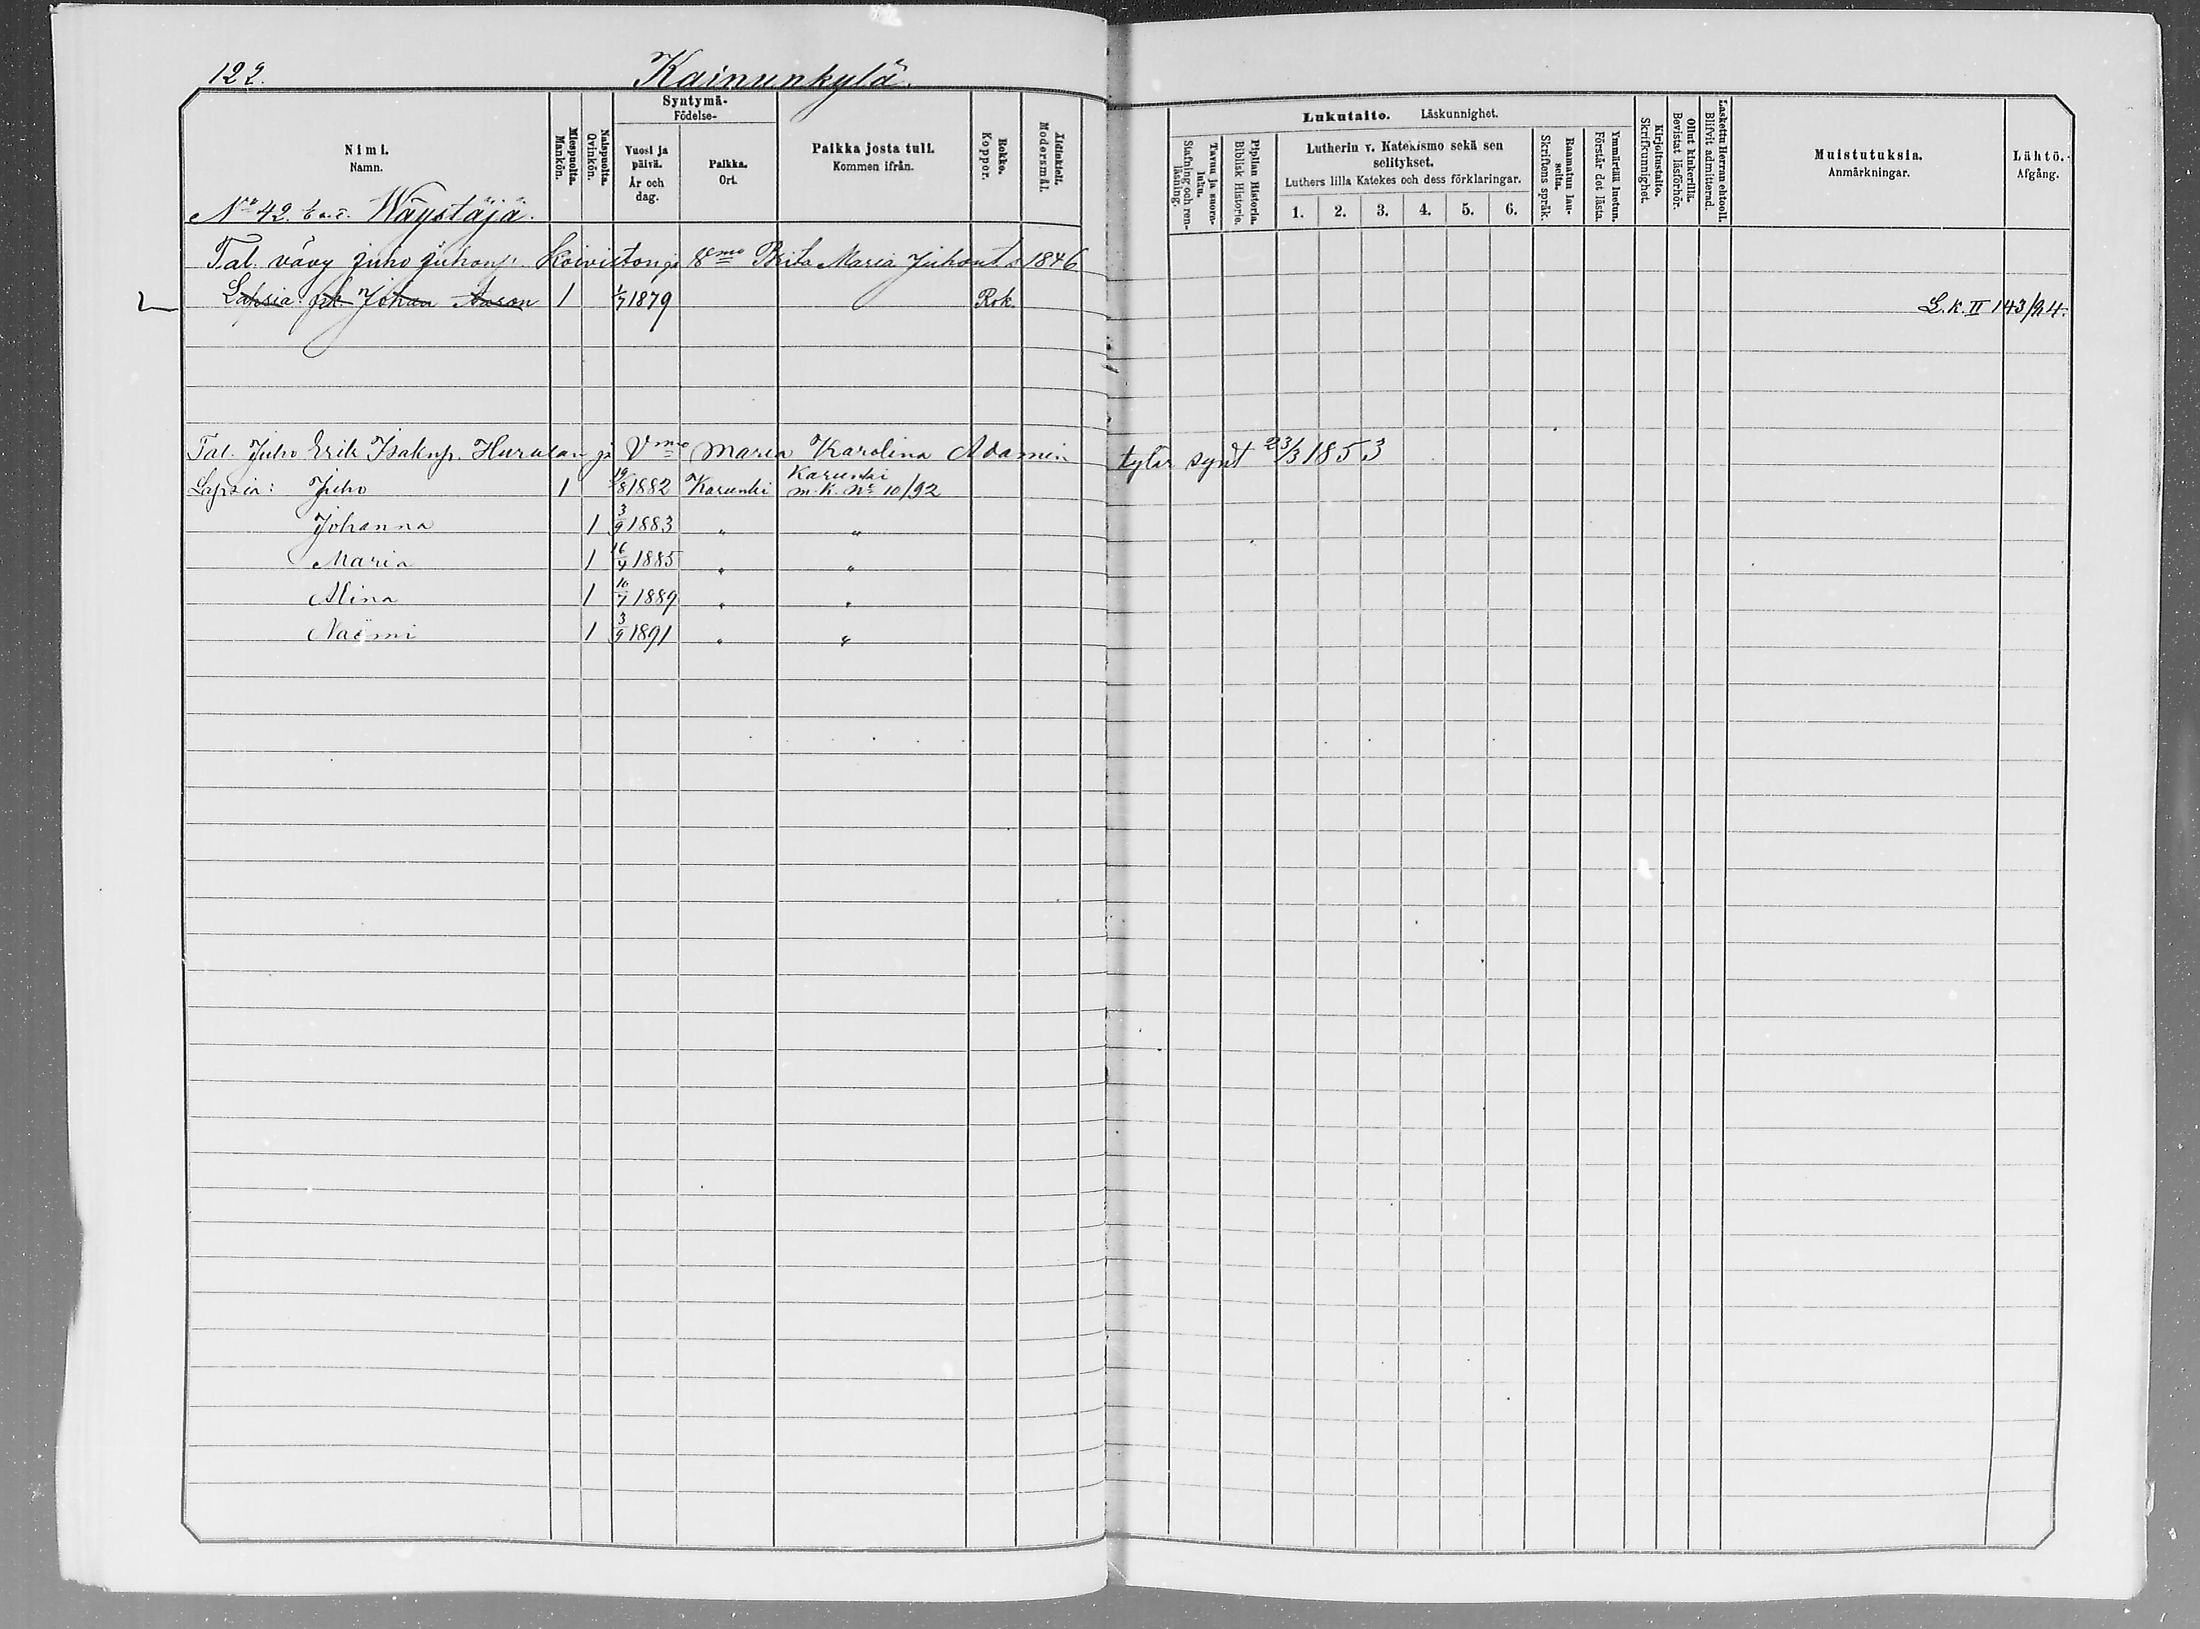 122.
Kainunkylä.
Nimi.
Namn.
Miespuolta.
Mankön.
Naispuolta.
Qvinkön.
Syntymä-
Födelse-
Vuosi ja
päivä.
År och
dag.
Paikka.
Ort.
Paikka josta tuli.
Kommen ifrån.
Rokko.
Koppor.
Äidinkieli.
Modersmål.
Lukutaito. Läskunnighet.
Tavuu ja suora-
luku.
Stafning och ren-
läsning.
Piplian Historia.
Biblisk Historie.
Lutherin v. Katekismo sekä sen
selitykset.
Luthers lilla Katekes och dess förklaringar.
1. 2. 3. 4. 5. 6.
Raamatun lau-
seita.
Skriftens språk.
Ymmärtää luetun.
Förstår det lästa.
Kirjoitustaito.
Skrifkunnighet.
Ollut kinkerillä.
Bevistat läsförhör.
Laskettu Herran ehtooll.
Blifvit admitterad.
Muistutuksia.
Anmärkningar.
Lähtö.
Afgång.
No 42. Wäystäjä.
Tal. vävy Juho Juhonp. Koiviston ja Vmo Brita Maria Juhont. 1846
Lapsia: Johan Aaron 1 1/7 1879 Rok. L.k. II 143/94.
Tal. Juho Erik Isakinp. Hurulan ja Vmo Maria Karolina Adamin tytär synt 23/3 1853
Lapsia: Juho 1 19/8 1882 Karunki Karunki m.k. No 10/92
Johanna 1 3/9 1883 " "
Maria 1 16/4 1885 " "
Alina 1 10/7 1889 " "
Naëmi 1 3/9 1891 " "